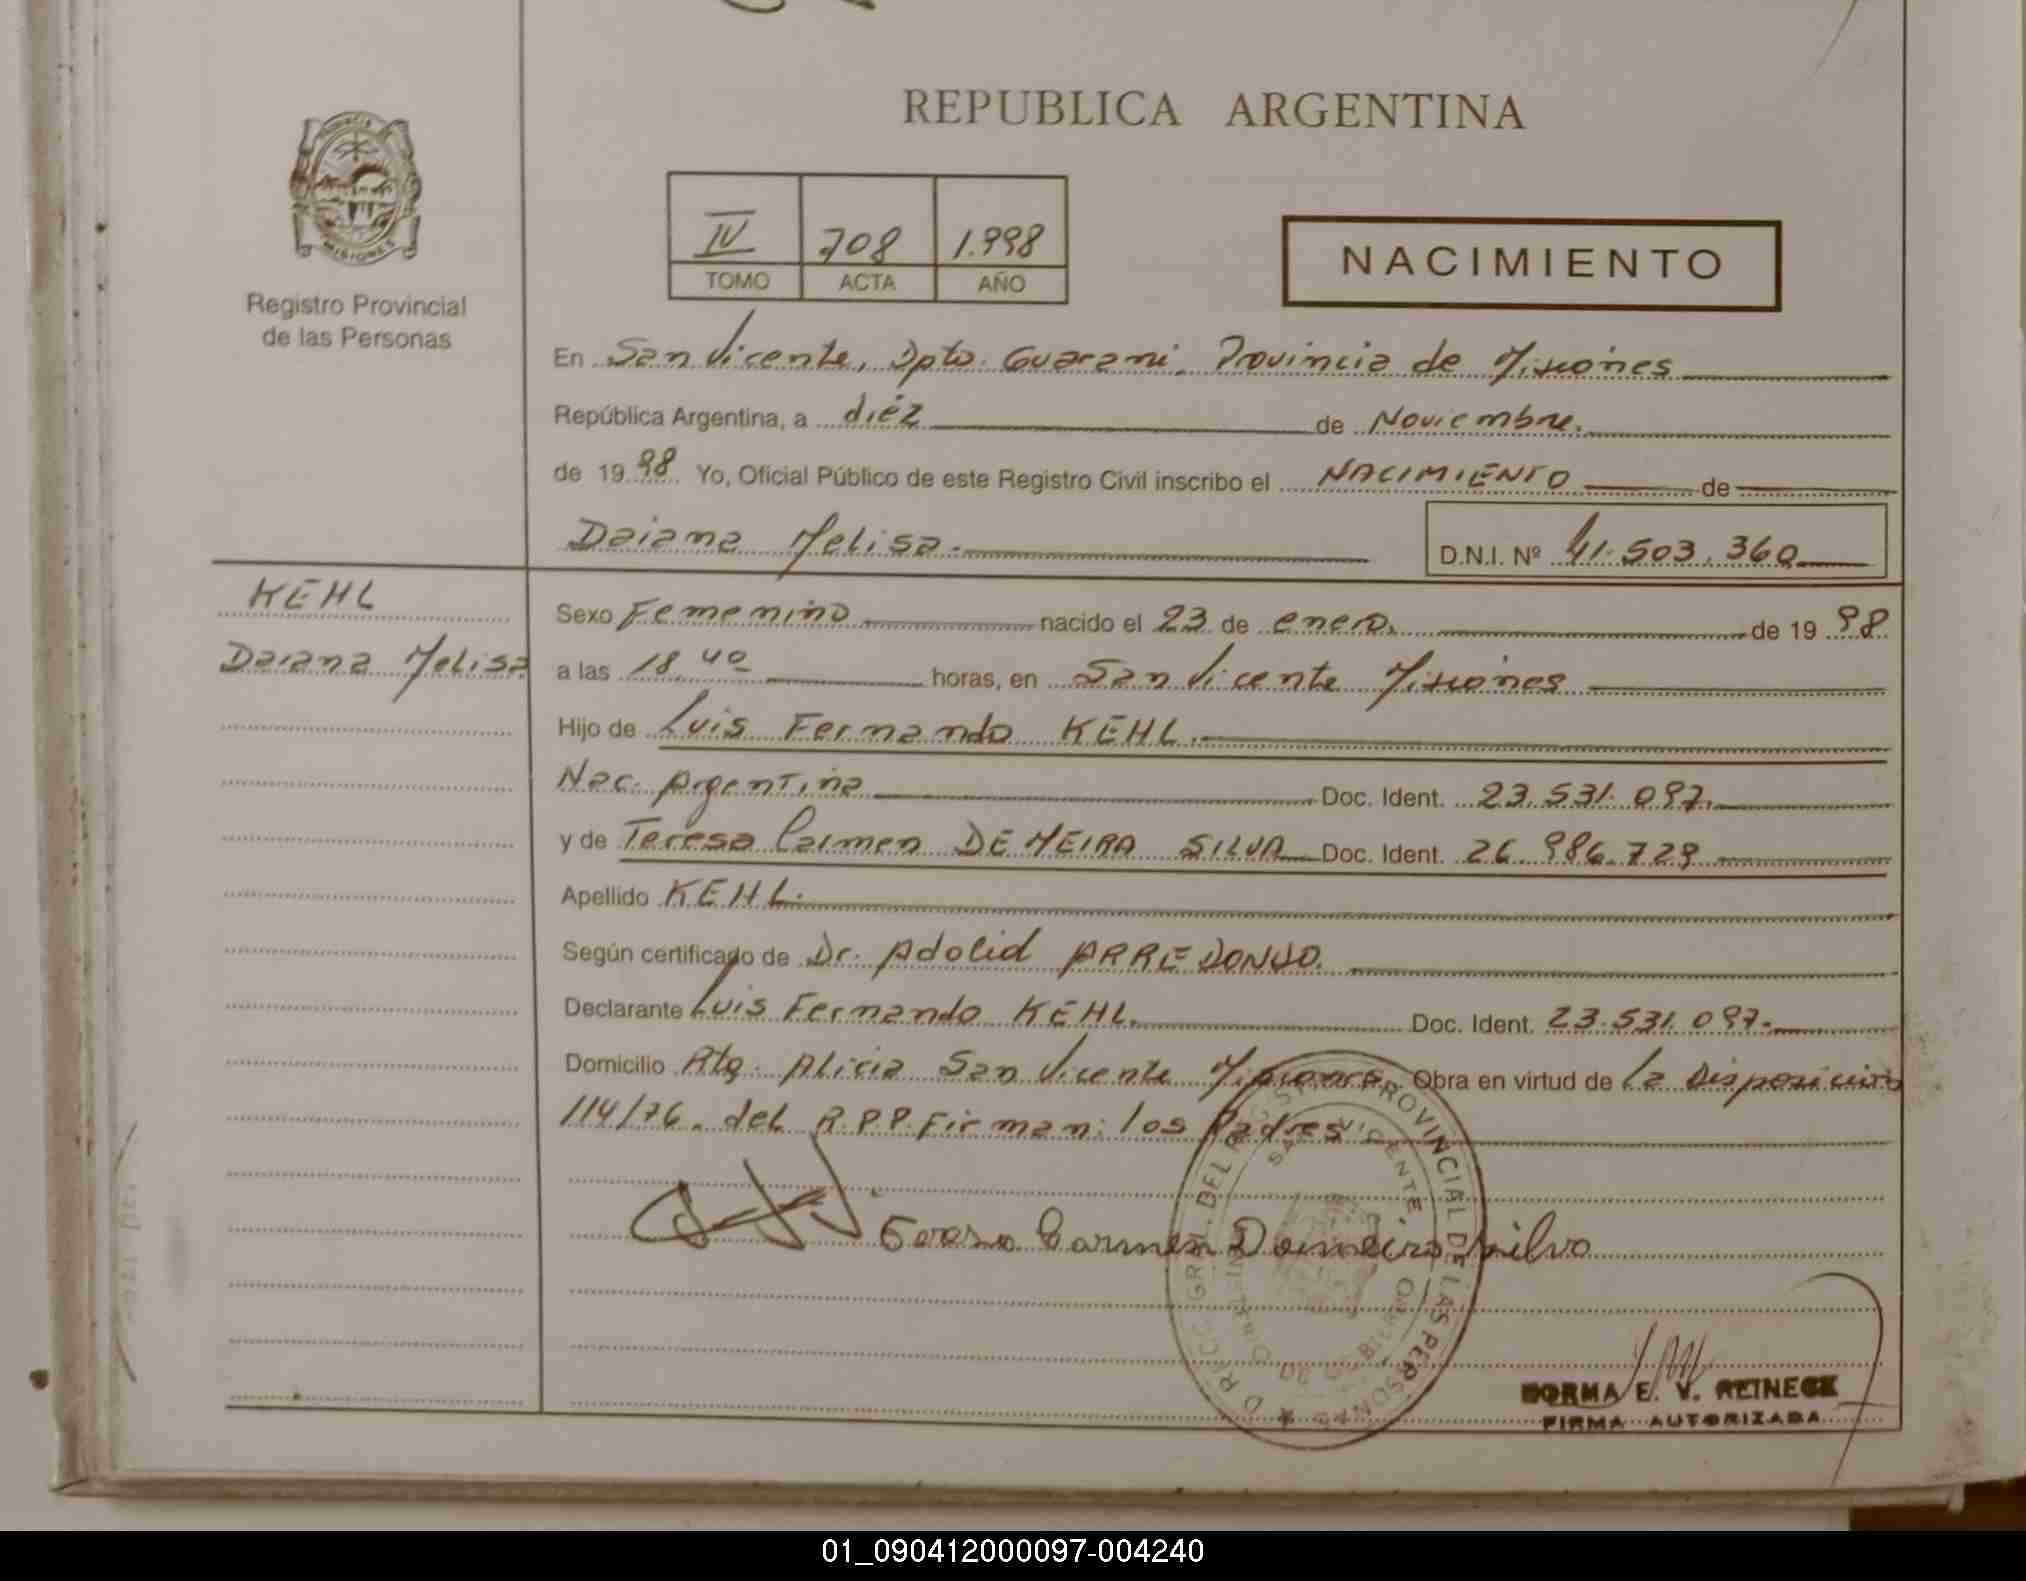 REPUBLICA ARGENTINA
PROVINCIA DE
MISIONES
Registro Provincial
de las Personas
IV 708 1.998
TOMO ACTA AÑO
NACIMIENTO
En San Vicente, Dpto. Guarani, Provincia de Misiones
República Argentina, a diéz de Noviembre.
de 1998 Yo, Oficial Público de este Registro Civil inscribo el NACIMIENTO de
Daiana Melisa. D.N.I. Nº 41.503.360
KEHL
Daiana Melisa
Sexo Femenino nacido el 23 de enero. de 1998
a las 18.40 horas, en San Vicente Misiones
Hijo de Luis Fernando KEHL.
Nac. Argentina Doc. Ident. 23.531.097.
y de Teresa Carmen DE MEIRA SILVA Doc. Ident. 26.986.729
Apellido KEHL.
Según certificado de Dr. Adolid ARREDONDO.
Declarante Luis Fernando KEHL. Doc. Ident. 23.531.097.
Domicilio Alicia San Vicente Misiones. Obra en virtud de la Disposición
114/76. del R.P.P. Firman: los Padres
Carmen Silva
DIRECC. GRAL. DEL REGISTRO PROVINCIAL DE LAS PERSONAS
SAN VICENTE
NORMA E. V. REINECK
FIRMA AUTORIZADA
01_090412000097-004240